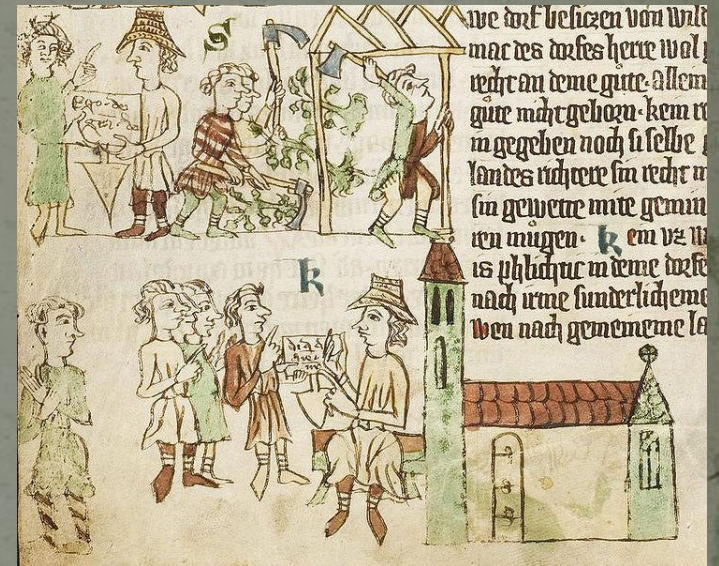 S
we dorf besiczen von wild
mac des dorfes herre wol
recht an deme gute. allem
gute nicht geborn. kein
in gegeben noch si selbe
landes richtere sin recht
sin gewette mite
ren mugen. K ein vz
is phlichtic in deme dorfe
nach irme sunderlicheme
wen nach gemeineme la
Ego do
K